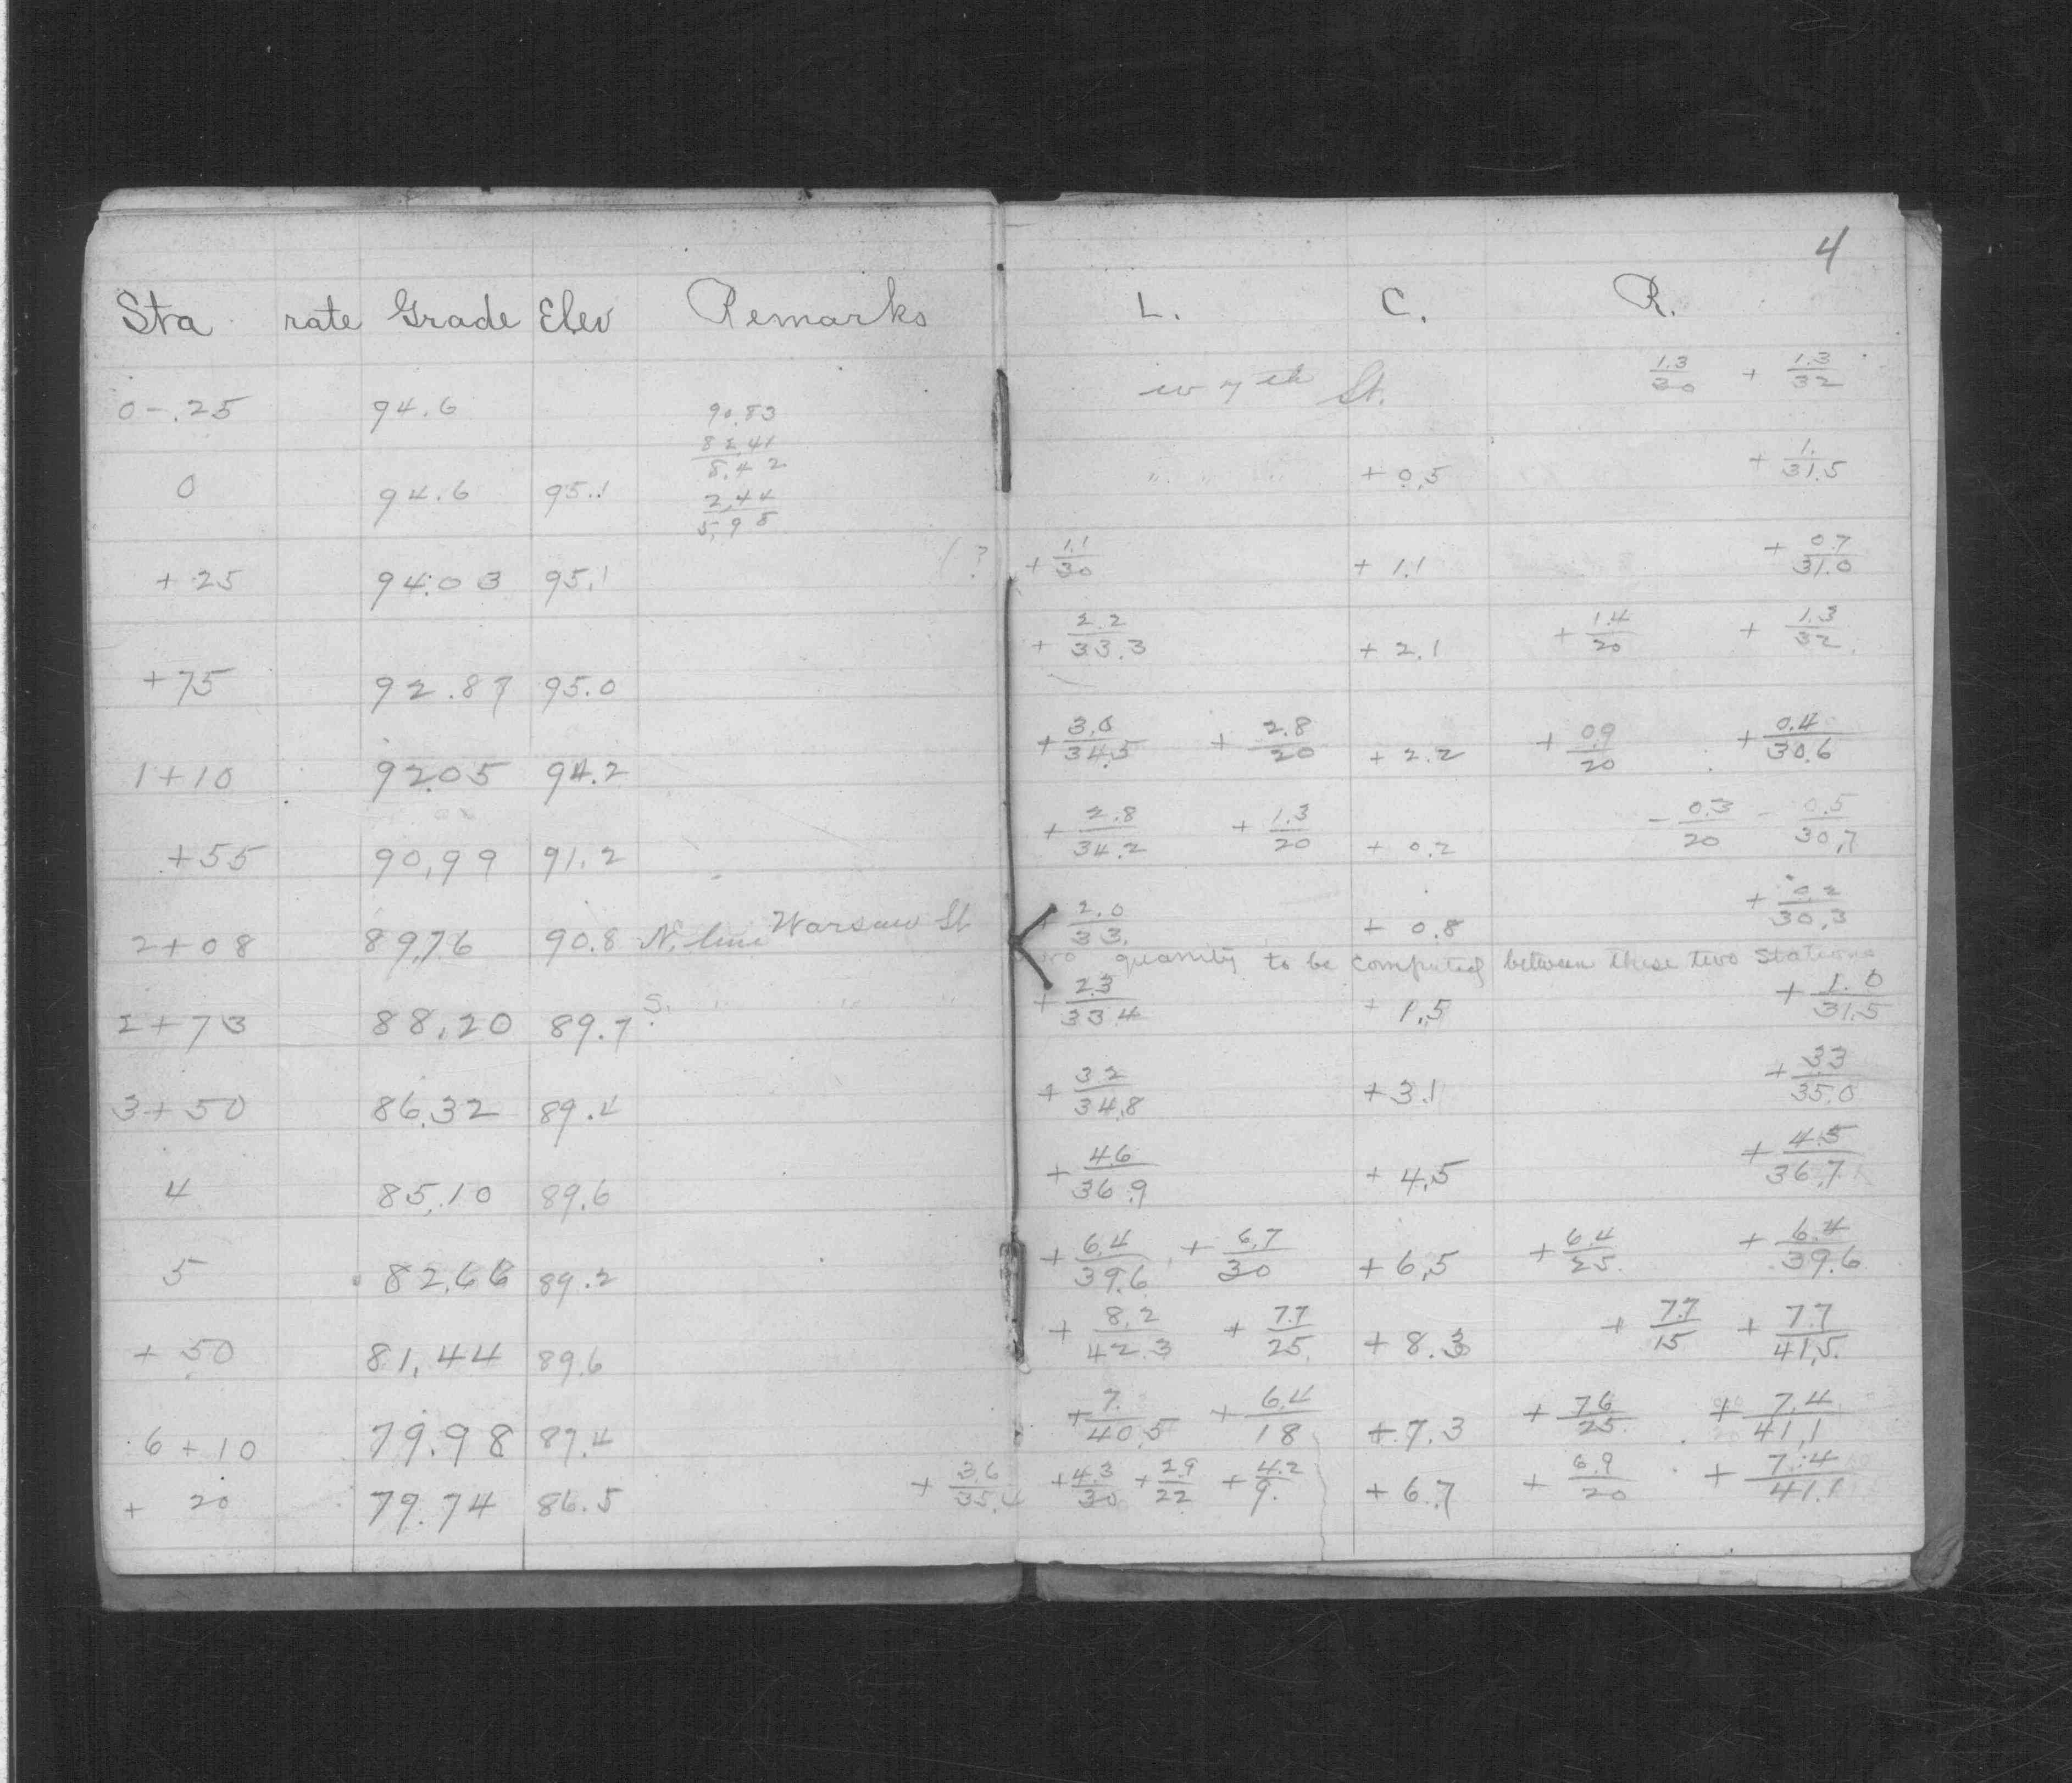 4
Sta rate Grade Elev Remarks L. C. R.
0-.25 94.6 90.83 in 7th St. 1.3/30 + 1.3/32
82.41
8.42
0 94.6 95.1 2.44 " " " + 0.5 + 1./31.5
5.98
+ 25 94.03 95.1 ? + 1.1/30 + 1.1 + 0.7/31.0
+ 75 92.87 95.0 + 2.2/33.3 + 2.1 + 1.4/20 + 1.3/32
1+10 92.05 94.2 + 3.0/34.5 + 2.8/20 + 2.2 + 0.9/20 + 0.4/30.6
+55 90.99 91.2 + 2.8/34.2 + 1.3/20 + 0.2 - 0.3/20 - 0.5/30.7
2+08 89.76 90.8 N. line Warsaw St + 2.0/33. + 0.8 + 0.2/30.3
no quantity to be computed between these two stations
2+73 88.20 89.7 S. " " " + 2.3/33.4 + 1.5 + 1.0/31.5
3+50 86.32 89.4 + 3.2/34.8 + 3.1 + 3.3/35.0
4 85.10 89.6 + 4.6/36.9 + 4.5 + 4.5/36.7
5 82.66 89.2 + 6.4/39.6 + 6.7/30 + 6.5 + 6.4/25. + 6.4/39.6
+ 50 81.44 89.6 + 8.2/42.3 + 7.7/25. + 8.3 + 7.7/15 + 7.7/41.5.
6+10 79.98 87.4 + 7./40.5 + 6.4/18 + 7.3 + 7.6/25. + 7.4/41.1
+ 20 79.74 86.5 + 3.6/35.4 + 4.3/30 + 2.9/22 + 4.2/9. + 6.7 + 6.9/20 + 7.4/41.1